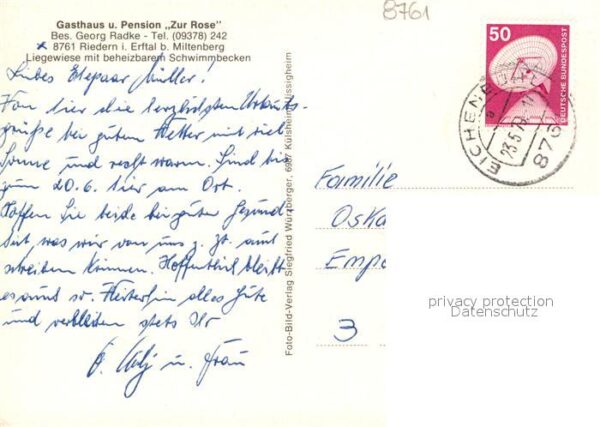 Gasthaus u. Pension „Zur Rose"
Bes. Georg Radke - Tel. (09378) 242
x 8761 Riedern i. Erftal b. Miltenberg
Liegewiese mit beheizbarem Schwimmbecken
8761
Liebes Ehepaar Müller!
Von hier die herzlichsten Urlaubs-
grüße bei gutem Wetter mit viel
Sonne und recht warm. Sind bis
zum 20.6. hier am Ort.
Hoffen Sie beide bei guter Gesund
heit, was wir von uns z. Zt. auch
schreiben können. Hoffentlich bleibt
es auch so. Weiterhin alles Gute
und verbleiben stets Ihr
u. Frau
Foto-Bild-Verlag Siegfried Würzberger, 6987 Külsheim-Uissigheim
50
DEUTSCHE BUNDESPOST
EICHENBÜHL
23.5.79
876
Familie
Oska
Empe
3
privacy protection
Datenschutz